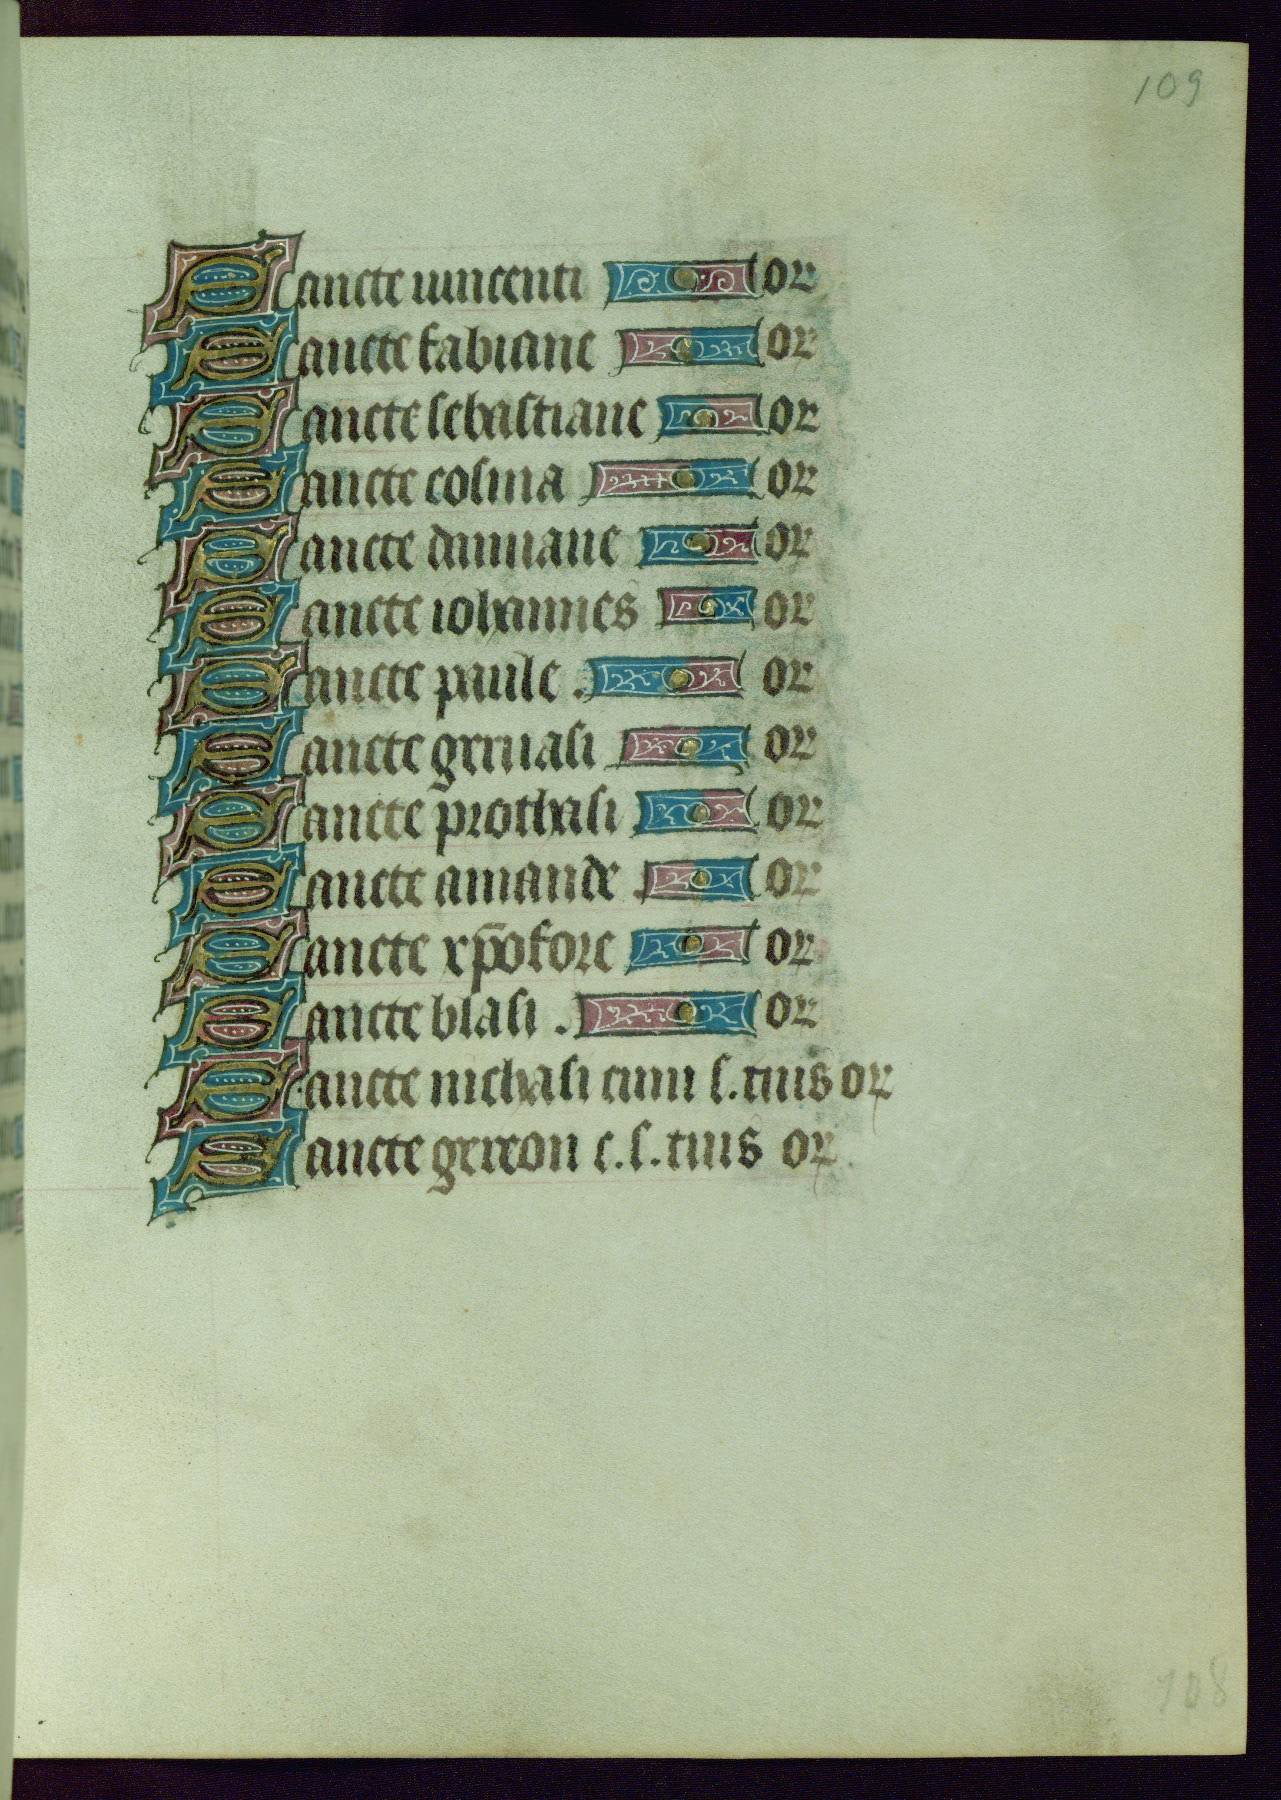 109
Sancte vincenti or
Sancte fabiane or
Sancte sebastiane or
Sancte cosma or
Sancte damiane or
Sancte iohannes or
Sancte paule . or
Sancte geruasi or
Sancte prothasi or
Sancte amande . or
Sancte xp̄ofore or
Sancte blasi . or
Sancte nichasi cum s. tuis or
Sancte gereon c. s. tuis or .
108